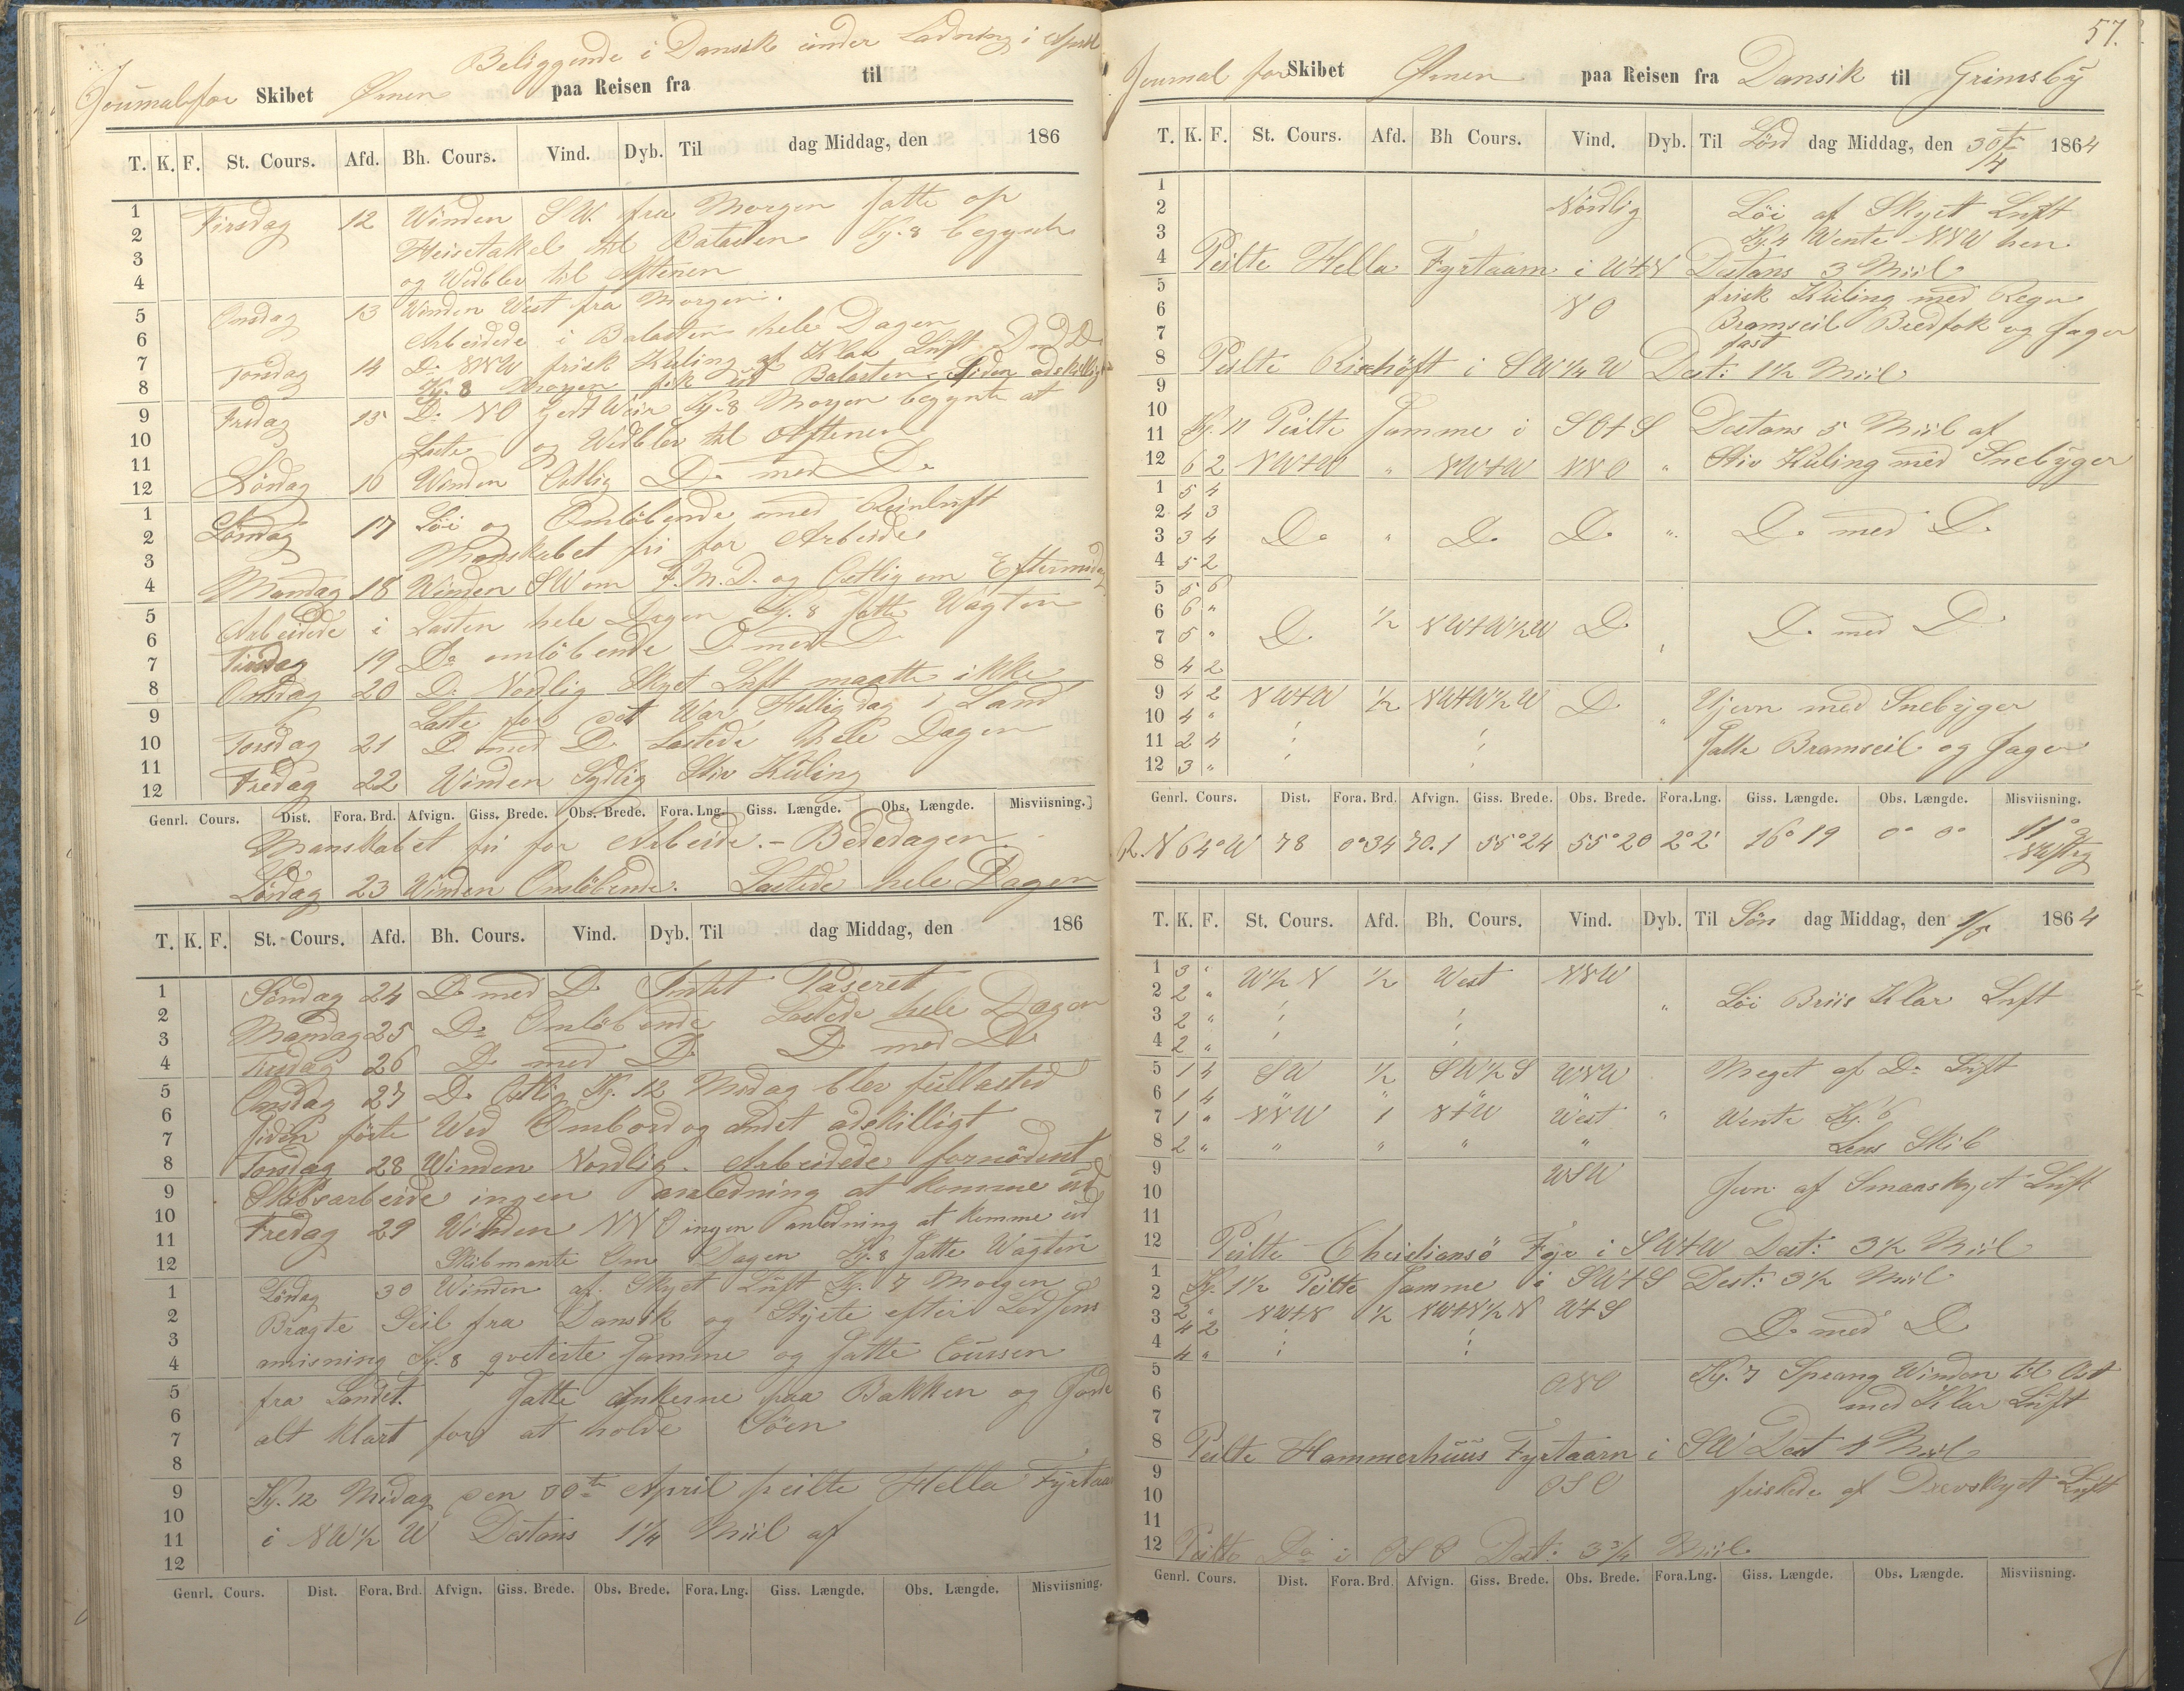 Beliggende i Dansik under Ladning i April
Journal for Skibet Ørnen paa Reisen fra til
T. K. F. St. Cours. Afd. Bh. Cours. Vind. Dyb. Til dag Middag, den 186
1 Tirsdag 12 Winden SW. fra Morgen Satte op
2 Heisetakel til Balasten Kl. 8 begynte
3 og Wedblev til Aftenen
4
5 Onsdag 13 Winden West fra Morgen.
6 Arbeidede i Balasten hele Dagen
7 Torsdag 14 Do NNW frisk Kuling af Klar Luft D med D
8 Kl. 8 Morgen fik ud Balasten Siden adskilligt
9 Fredag 15 Do NO Godt Weir Kl. 8 Morgen begynte at
10 Laste og Wedblev til Aftenen
11
12 Lørdag 16 Winden Østlig Do med Do
1 Søndag 17 Löi og Omlöbende med Reinluft
2 Mandskabet fri for Arbeide
3
4 Mandag 18 Winden SW om F.M.D. og Østlig om Eftermidag
5 Arbeidede i Lasten hele Dagen Kl. 8 Satte Wagten
6
7 Tirsdag 19 Do omlöbende D med D
8 Onsdag 20 D. Nordlig Skyet Luft maatte ikke
9 Laste for det War Helligdag i Land
10 Torsdag 21 D med D Lastede hele Dagen
11
12 Fredag 22 Winden Sydlig Stiv Kuling
Genrl. Cours. Dist. Fora. Brd. Afvign. Giss. Brede. Obs. Brede. Fora. Lng. Giss. Længde. Obs. Længde. Misviisning.
Manskabet fri for Arbeide. - Bededagen.
Lördag 23 Winden Omlöbende. Lastede hele Dagen
T. K. F. St. Cours. Afd. Bh. Cours. Vind. Dyb. Til dag Middag, den 186
1 Söndag 24 D med D Intet Paseret
2 Mandag 25 Do Omlöbende Lastede hele Dagen
3
4 Tirsdag 26 D med D D med D
5 Onsdag 27 D Østlig Kl. 12 Midag blev fullasted
6
7 Siden förte Wed Ombord og andet adskilligt
8 Torsdag 28 Winden Nordlig. Arbeidede fornödent
9 Skibsarbeide ingen anledning at komme ud
10
11 Fredag 29 Winden NNO ingen anledning at komme ud
12 Skibmante Om Dagen Kl. 8 Satte Wagten
1 Lördag 30 Winden af Skyet Luft Kl. 7 Morgen
2 Bragte Seil fra Dansik og Styrte efter Lodsens
3
4 anvisning Kl. 8 qviterte Samme og Satte Coursen
5 fra Landet. Satte Ankerne paa Bakken og Gjorde
6
7 alt klart for at holde Söen
8
9 Kl. 12 Midag den 30te April peilte Hella Fyrtaarn
10
11 i NW½ W Distans 1¼ Miil af
12
Genrl. Cours. Dist. Fora. Brd. Afvign. Giss. Brede. Obs. Brede. Fora. Lng. Giss. Længde. Obs. Længde. Misviisning.
57.
Journal for Skibet Ørnen paa Reisen fra Dansik til Grimsby
T. K. F. St. Cours. Afd. Bh Cours. Vind. Dyb. Til Lörd dag Middag, den 30te/4 1864
1
2 Nordlig Löi af Skyet Luft
3 Kl. 4 Wente NNW hen
4 Peilte Hella Fyrtaarn i WtN Distans 3 Miil
5 frisk Kuling med Regn
6 NO Bramseil Bredfok og Jager
7 fast
8 Peilte Rixhöft i SW¼ W Dist: 1½ Miil
9
10
11 Kl. 11 Peilte Samme i SOtS Distans 5 Miil af
12 6 2 NWtW " NWtW NNO " Stiv Kuling med Snebyger
1 5 4
2 4 3
3 3 4 Do " Do Do " Do med Do
4 5 2
5 5 6
6 6 "
7 5 " D ½ NWtW½W D " D. med D
8 4 2
9 4 2 NWtW ½ NWtW½W D " Ujevn med Snebyger
10 4 "
11 2 4 Satte Bramseil og Jager
12 3 "
Genrl. Cours. Dist. Fora. Brd. Afvign. Giss. Brede. Obs. Brede. Fora.Lng. Giss. Længde. Obs. Længde. Misviisning.
R. N 64° W 78 0°34 70.1 55°24 55°20 2°2' 16°19 0° 0° 11°
T. K. F. St. Cours. Afd. Bh. Cours. Vind. Dyb. Til Sön dag Middag, den 1/5 1864
1 3 " W½ N ½ West NNW
2 2 " " Löi Briis Klar Luft
3 2 "
4 2 "
5 1 4 SW ½ SW½ S WNW Meget af Do Luft
6 1 4 " " " "
7 1 " NNW 1 NtW West " Wente Kl. 6
8 2 " " " " " Lens Skib
9 WSW Jevn af Smaaskyet Luft
10
11
12 Peilte Christiansö Fyr i SWtW Dist: 3½ Miil
1 Kl. 1½ Peilte Samme i SWtS Dist: 3½ Miil
2
3 2 " NWtN ½ NWtN½ N WtS
4 2 D. med D
4 4 "
5 Kl. 7 Sprang Winden til Ost
6 ONO med Klar Luft
7
8 Peilte Hammerhuus Fyrtaarn i SW Dist 4 Miil
9 OSO friskede af Drevskyet Luft
10
11
12 Peilte Do i OSO Dist: 3¾ Miil
Genrl. Cours. Dist. Fora. Brd. Afvign. Giss. Brede. Obs. Brede. Fora.Lng. Giss. Længde. Obs. Længde. Misviisning.